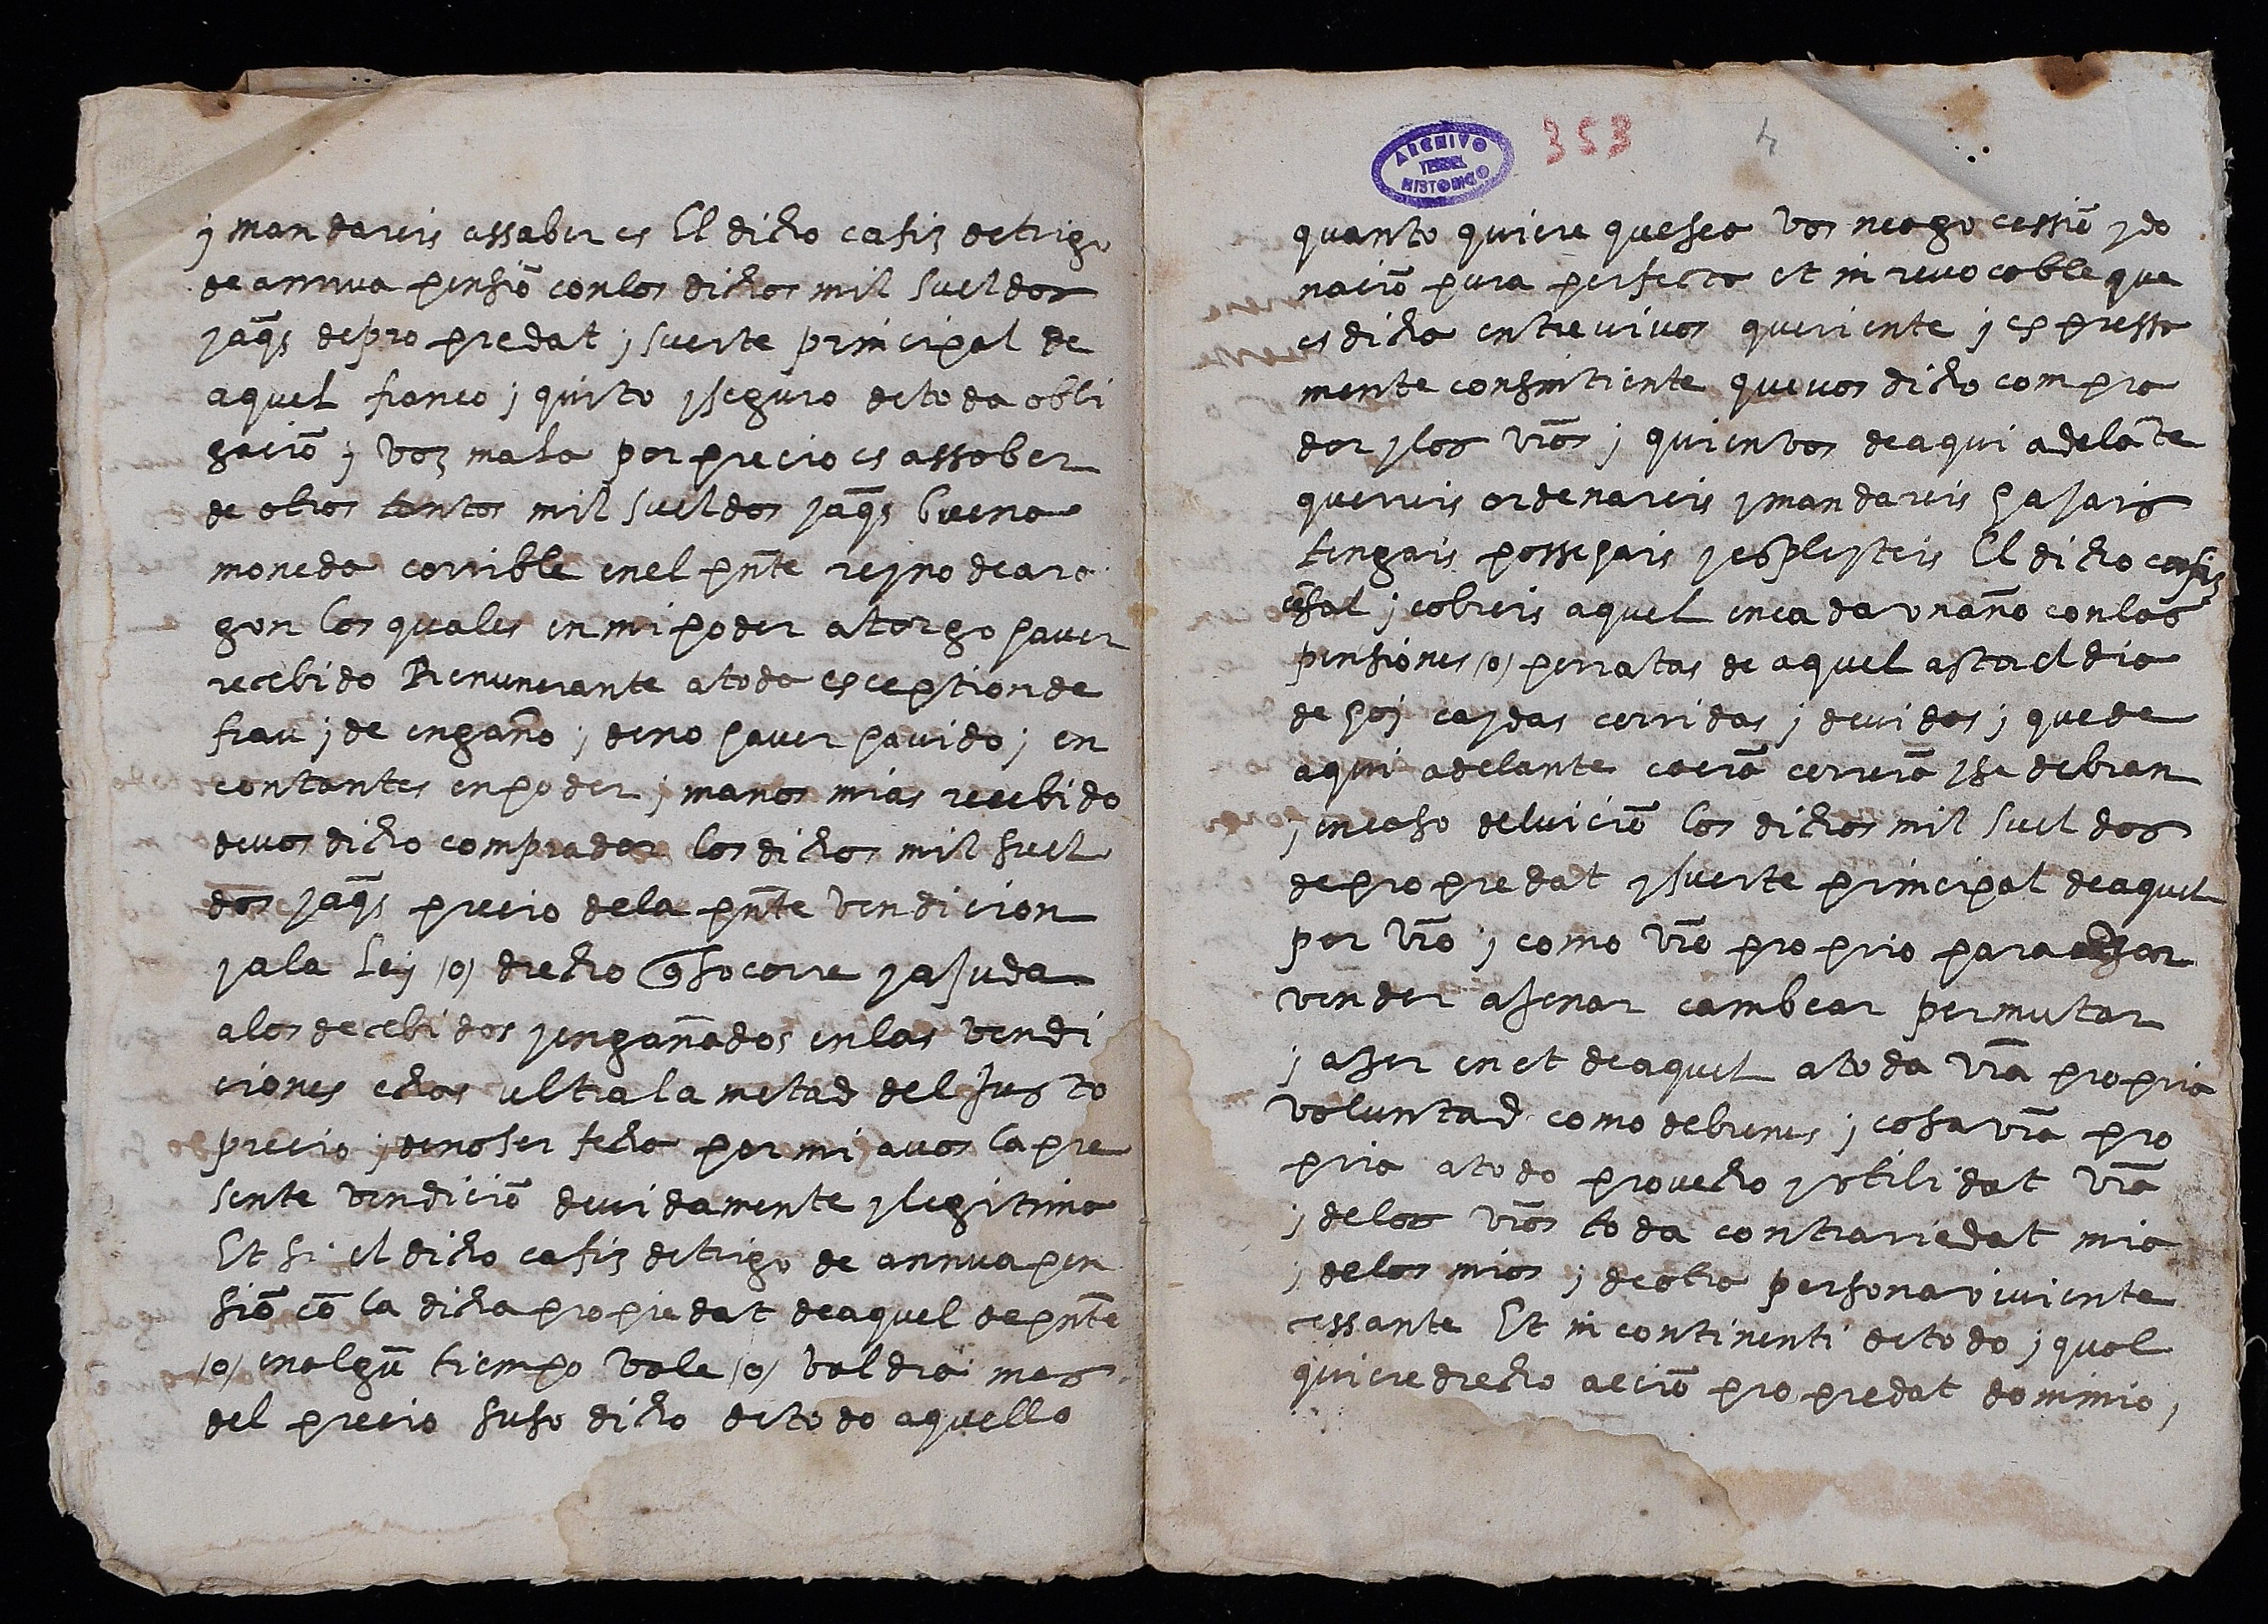 y mandareis assaber es El dicho cafiz detrigo
de annua pensiō conlos dichos mil sueldos
jaq̄s depropredat y suerte principal de
aquel franco y quito y seguro detoda obli
gaciō y voz mala por precio es assaber
de otros tantos mil sueldos jaq̄s buena
moneda corrible enel pn̄te reyno deara
gon los quales enmipoder atorgo haver
recebido Renunciante atoda exception de
frau y de engaño y deno haver havido y en
contantes enpoder y manos mias recebido
devos dicho comprador los dichos mil suel
dos jaq̄s precio dela pn̄te vendicion
y ala ley /o/ drecho q̄ socorre y ajuda
alos decebidos y engañados enlas vendi
ciones echas ultra la metad del justo
precio y denoser fecha por mi avos la pre
sente vendiciō devidamente y legitima
Et si el dicho cafiz detrigo de annua pen
siō cō la dicha propiedat deaquel de pn̄te
/o/ enalgū tiempo vale /o/ valdra mas
del precio suso dicho detodo aquello
ARCHIVO
TERUEL
HISTORICO
353
4
quanto quiere quesea vos neago cessiō y do
naciō pura perfecta et inrevocable que
es dicha entrevivos queriente y expressa
mente consintiente quevos dicho compra
dor y los vr̄os y quienvos deaqui adelāte
querreis ordenareis y mandareis hajais
tengais possehais y expleyteis El dicho cafiz
cēsal y cobreis aquel encadaunaño conlas
pensiones /o/ perratas de aquel asta el dia
de hoy caydas corridas y devidas y quede
aqui adelante caerā correrā y se debran
y encaso deluiciō los dichos mil sueldos
depropredat y suerte principal deaquel
por vr̄o y como vr̄o proprio para
vender ajenar cambear permutar
y aser en et deaquel atoda vr̄a propria
voluntad como debienes y cosa vr̄a pro
pria atodo provecho y utilidat vr̄a
y delos vr̄os toda contrariedat mia
y delos mios y deotra persona viviente
cessante Et incontinenti detodo y qual
quiere drecho acciō propredat dominio,